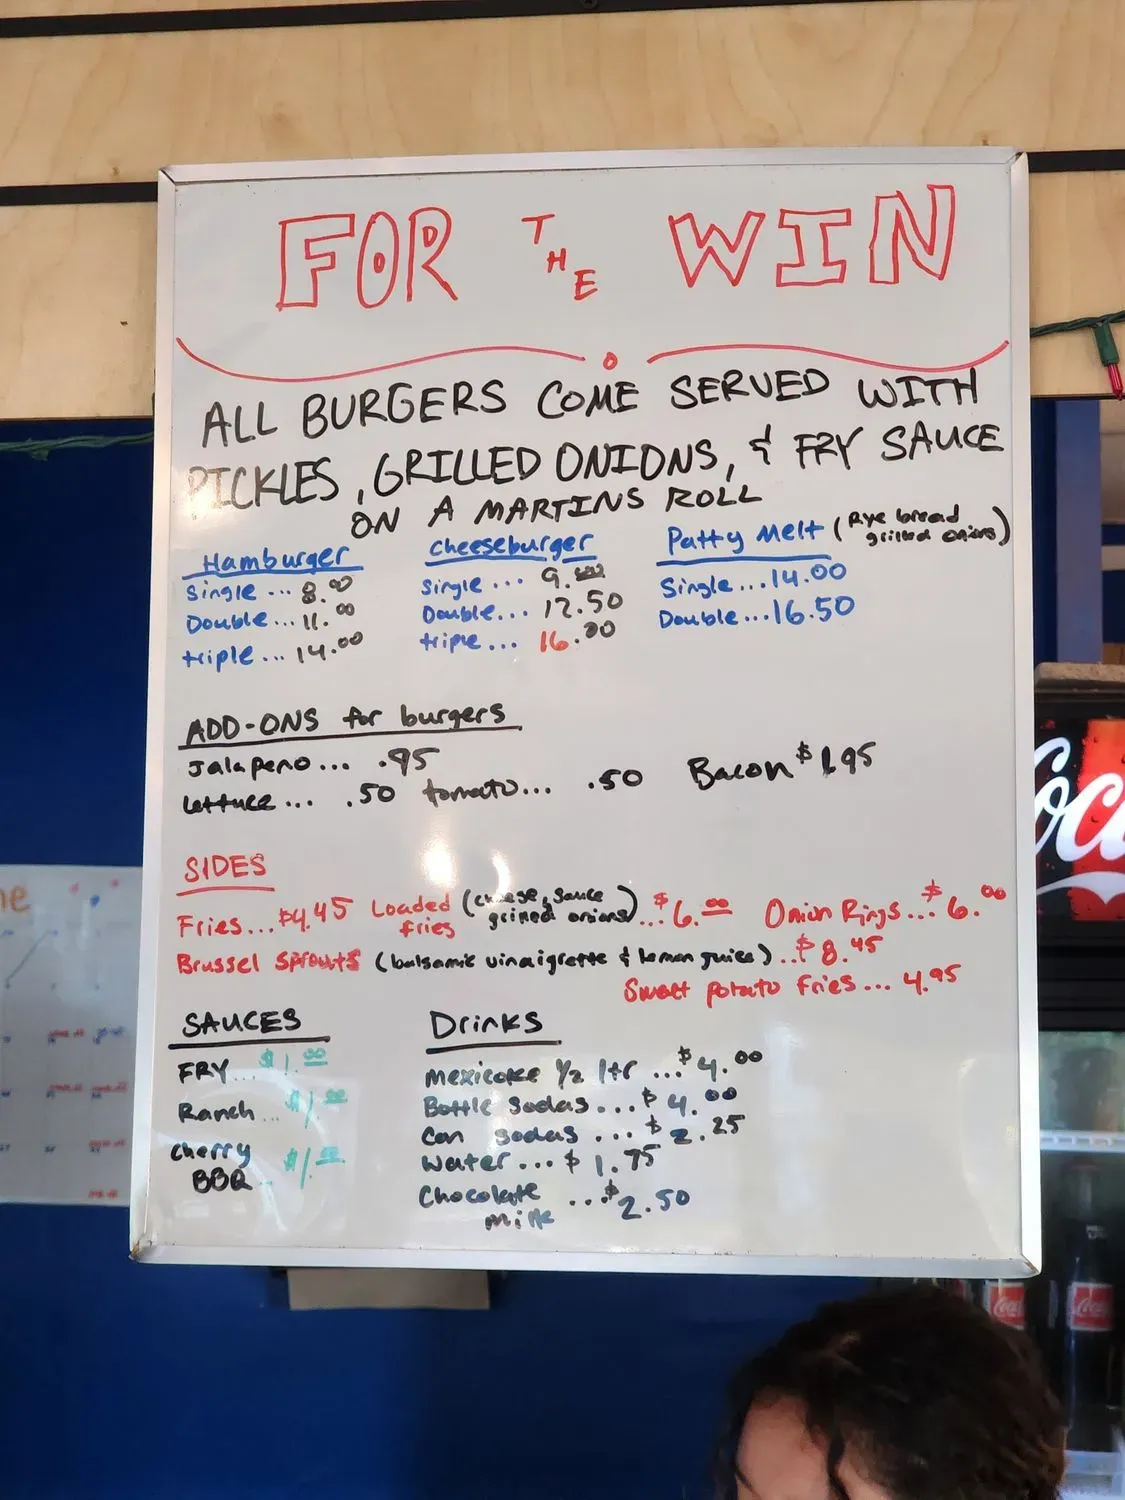 FOR THE WIN
ALL BURGERS COME SERVED WITH
PICKLES, GRILLED ONIONS, & FRY SAUCE
ON A MARTINS ROLL
Hamburger
Single ... 8.00
Double ... 11.00
triple ... 14.00
Cheeseburger
Single ... 9.00
Double ... 12.50
triple ... 16.00
Patty Melt (Rye bread grilled onions)
Single ... 14.00
Double ... 16.50
ADD-ONS for burgers
Jalapeno ... .95
Lettuce ... .50 tomato ... .50 Bacon $1.95
SIDES
Fries ... $4.45 Loaded fries (cheese, sauce grilled onions) ... $6.00 Onion Rings ... $6.00
Brussel sprouts (balsamic vinaigrette & lemon juice) ... $8.45
Sweet potato fries ... 4.95
SAUCES
FRY ... $1.00
Ranch ... $1.00
Cherry
BBQ ... $1.00
Drinks
Mexicoke 1/2 ltr ... $4.00
Bottle sodas ... $4.00
Can sodas ... $2.25
Water ... $1.75
Chocolate milk ... $2.50
Coca
Coca